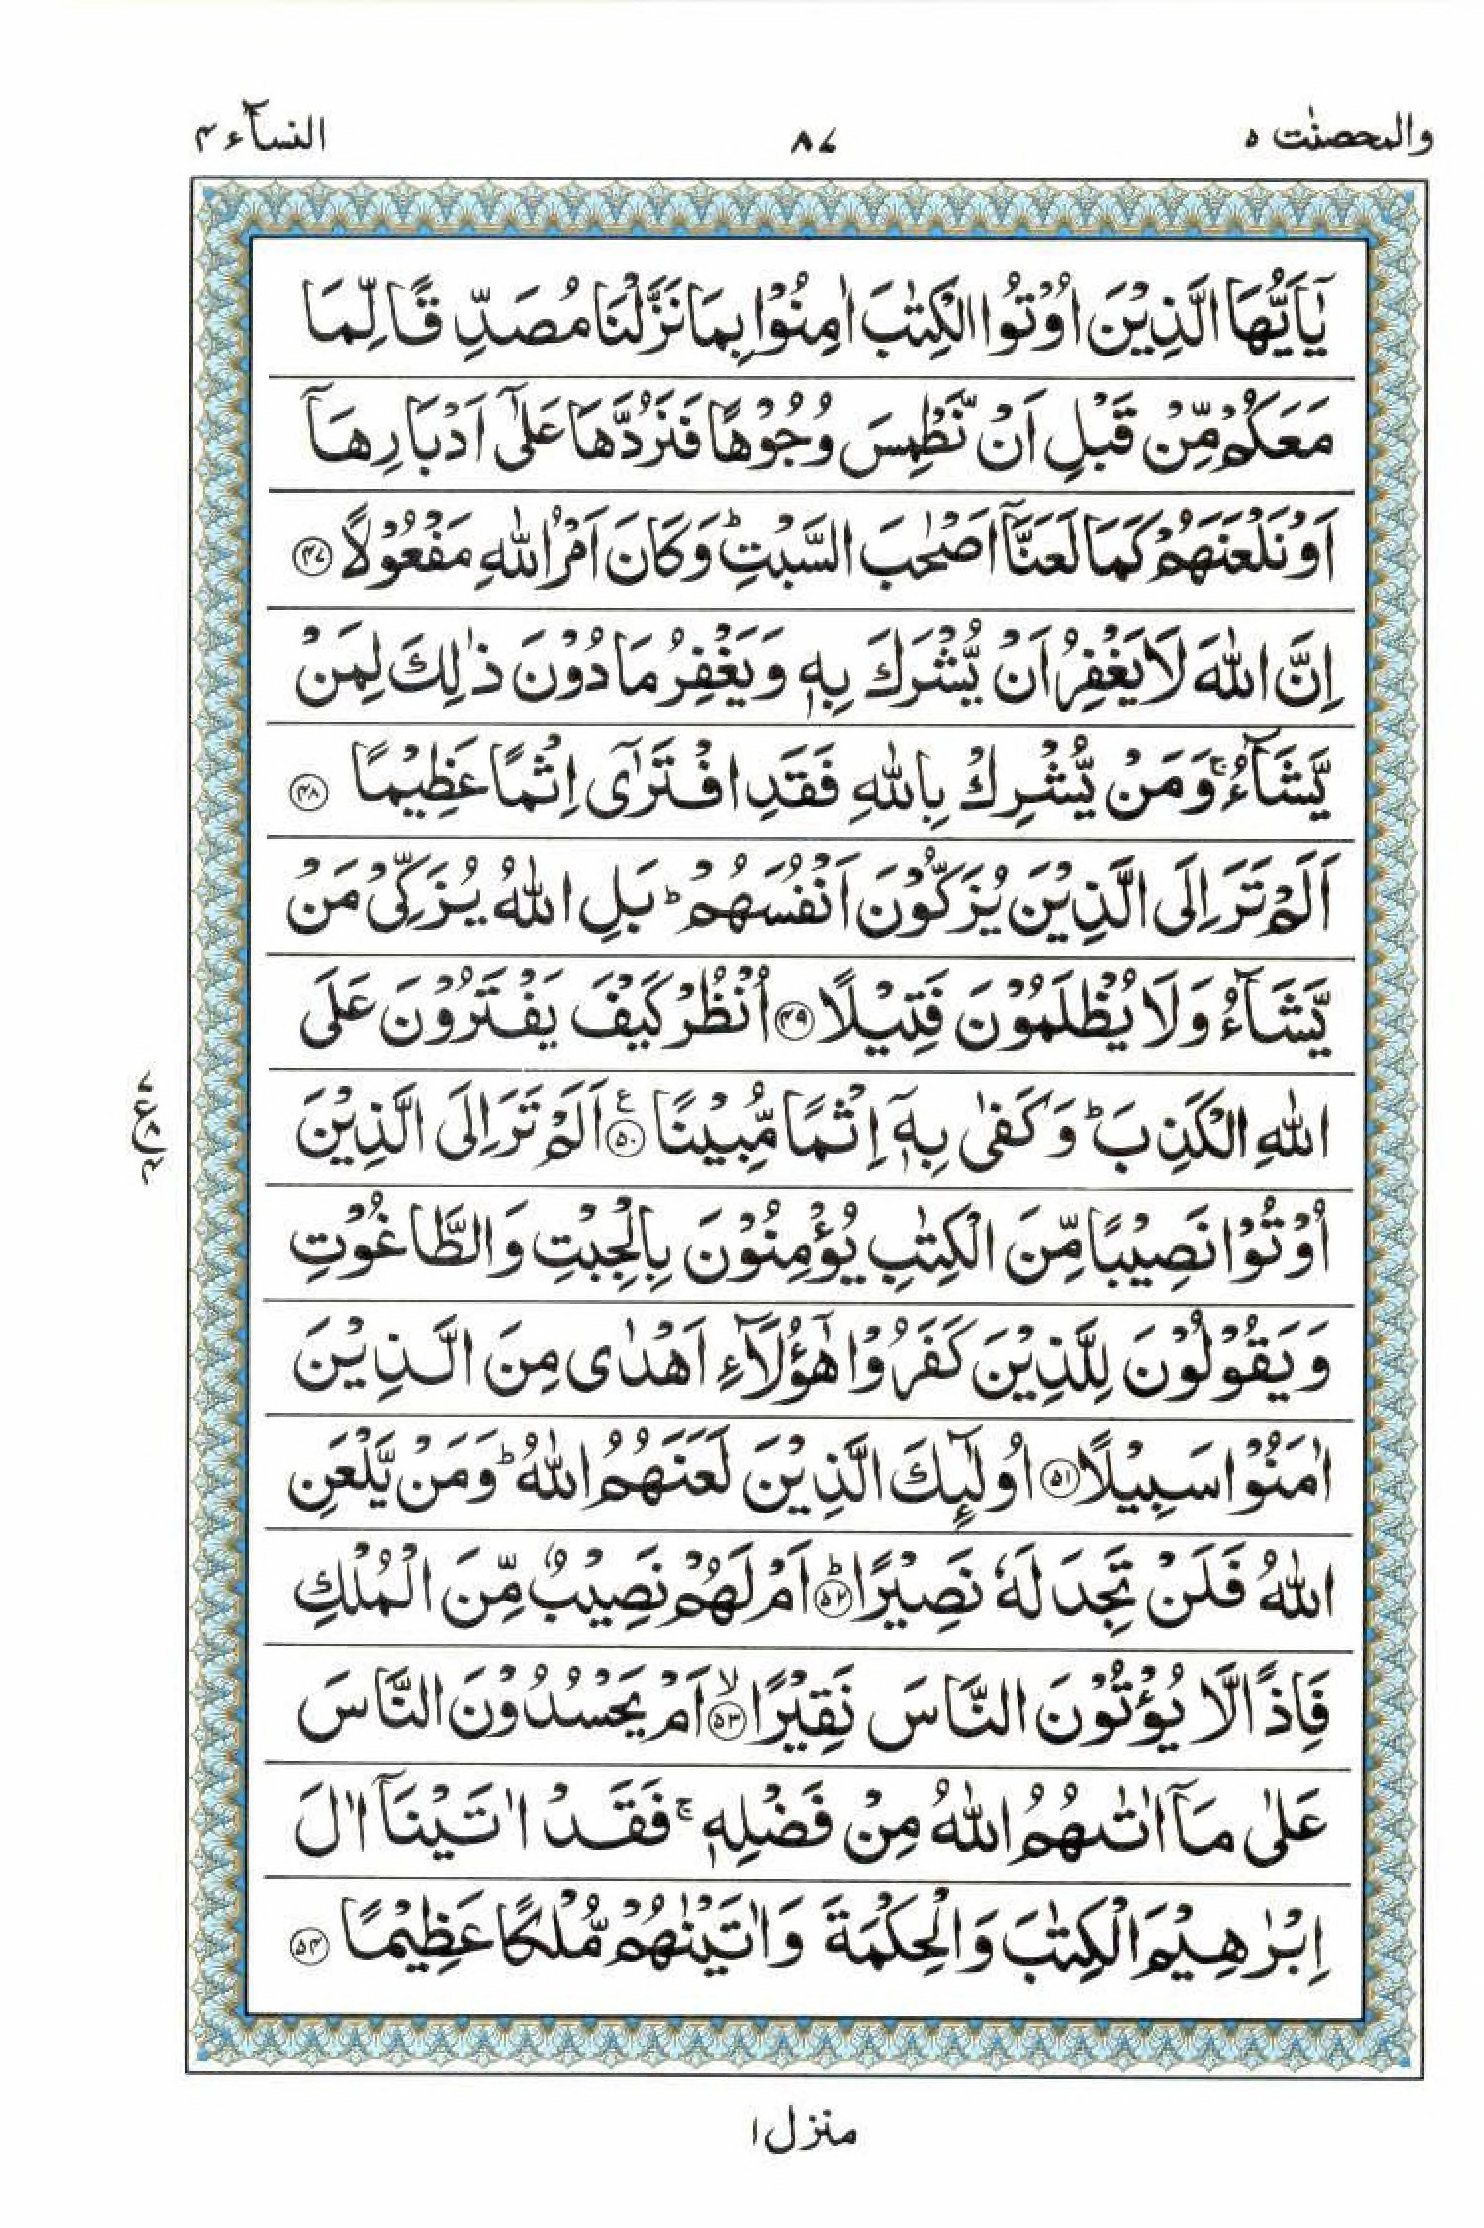 والمحصنٰت ۵
۸۷
النسآء ۴
يٰۤاَيُّهَا الَّذِيْنَ اُوْتُوا الْكِتٰبَ اٰمِنُوْا بِمَا نَزَّلْنَا مُصَدِّقًا لِّمَا
مَعَكُمْ مِّنْ قَبْلِ اَنْ نَّطْمِسَ وُجُوْهًا فَنَرُدَّهَا عَلٰۤى اَدْبَارِهَاۤ
اَوْ نَلْعَنَهُمْ كَمَا لَعَنَّاۤ اَصْحٰبَ السَّبْتِ ؕ وَكَانَ اَمْرُ اللّٰهِ مَفْعُوْلًا ۴۷
اِنَّ اللّٰهَ لَا يَغْفِرُ اَنْ يُّشْرَكَ بِهٖ وَيَغْفِرُ مَا دُوْنَ ذٰلِكَ لِمَنْ
يَّشَآءُ ۚ وَمَنْ يُّشْرِكْ بِاللّٰهِ فَقَدِ افْتَرٰۤى اِثْمًا عَظِيْمًا ۴۸
اَلَمْ تَرَ اِلَى الَّذِيْنَ يُزَكُّوْنَ اَنْفُسَهُمْ ؕ بَلِ اللّٰهُ يُزَكِّىْ مَنْ
يَّشَآءُ وَلَا يُظْلَمُوْنَ فَتِيْلًا ۴۹ اُنْظُرْ كَيْفَ يَفْتَرُوْنَ عَلَى
اللّٰهِ الْكَذِبَ ؕ وَكَفٰى بِهٖۤ اِثْمًا مُّبِيْنًا ۵۰ ع اَلَمْ تَرَ اِلَى الَّذِيْنَ
اُوْتُوْا نَصِيْبًا مِّنَ الْكِتٰبِ يُؤْمِنُوْنَ بِالْجِبْتِ وَالطَّاغُوْتِ
وَيَقُوْلُوْنَ لِلَّذِيْنَ كَفَرُوْا هٰۤؤُلَآءِ اَهْدٰى مِنَ الَّذِيْنَ
اٰمَنُوْا سَبِيْلًا ۵۱ اُولٰٓئِكَ الَّذِيْنَ لَعَنَهُمُ اللّٰهُ ؕ وَمَنْ يَّلْعَنِ
اللّٰهُ فَلَنْ تَجِدَ لَهٗ نَصِيْرًا ؕ ۵۲ اَمْ لَهُمْ نَصِيْبٌ مِّنَ الْمُلْكِ
فَاِذًا لَّا يُؤْتُوْنَ النَّاسَ نَقِيْرًا ۙ ۵۳ اَمْ يَحْسُدُوْنَ النَّاسَ
عَلٰى مَاۤ اٰتٰىهُمُ اللّٰهُ مِنْ فَضْلِهٖ ۚ فَقَدْ اٰتَيْنَاۤ اٰلَ
اِبْرٰهِيْمَ الْكِتٰبَ وَالْحِكْمَةَ وَاٰتَيْنٰهُمْ مُّلْكًا عَظِيْمًا ۵۴
۷
ع
۸
۴
منزل ۱